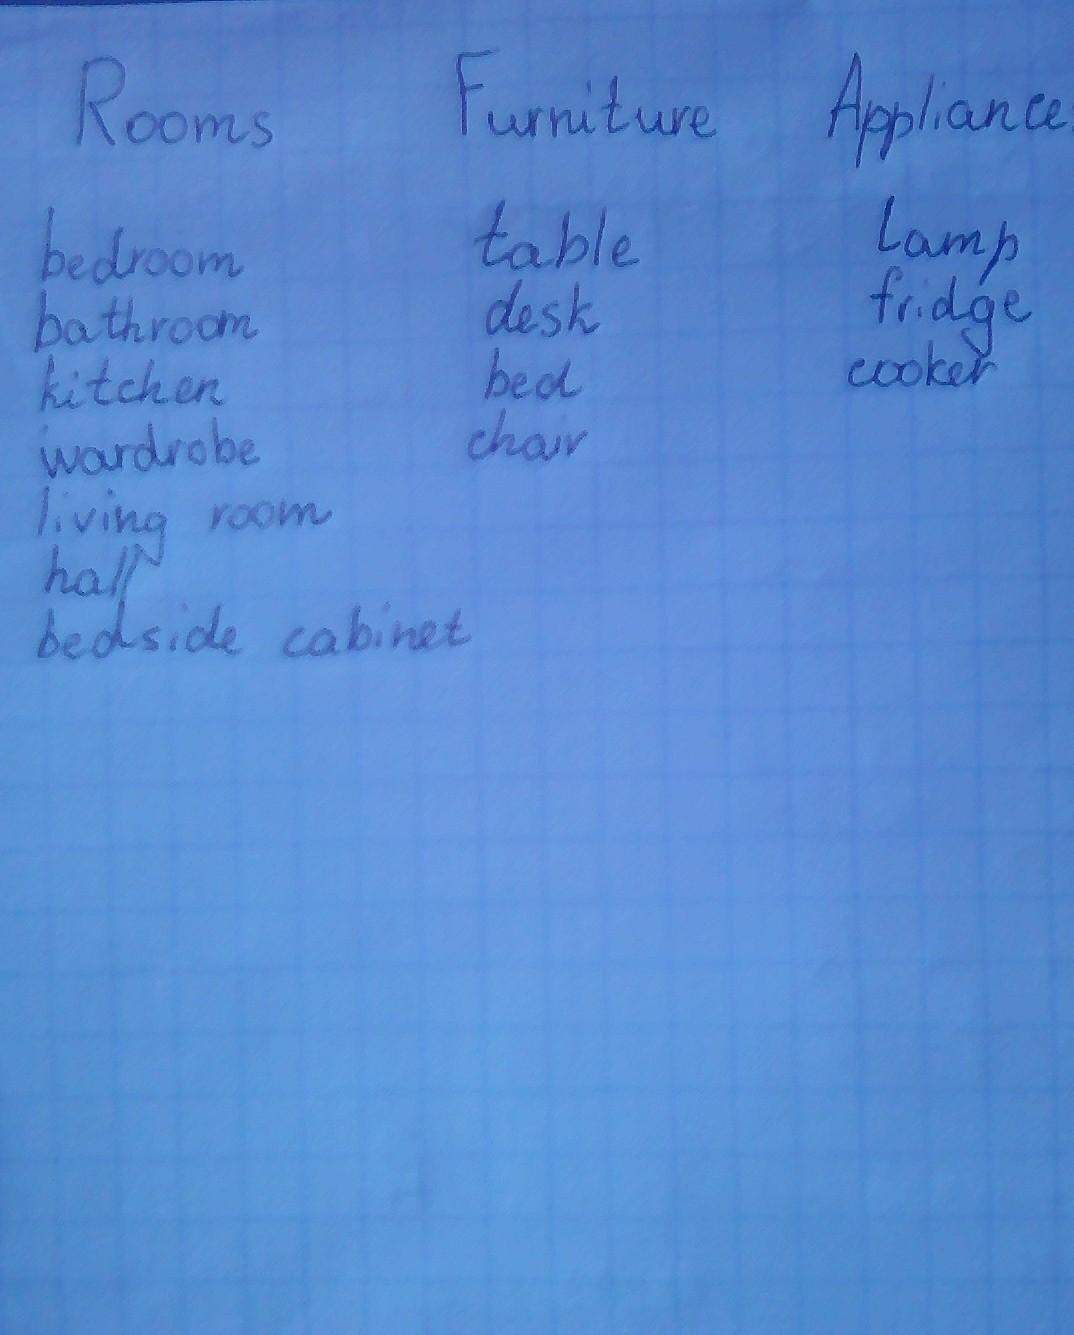 Rooms Furniture Appliances
bedroom table lamp
bathroom desk fridge
kitchen bed cooker
wardrobe chair
living room
hall
bedside cabinet